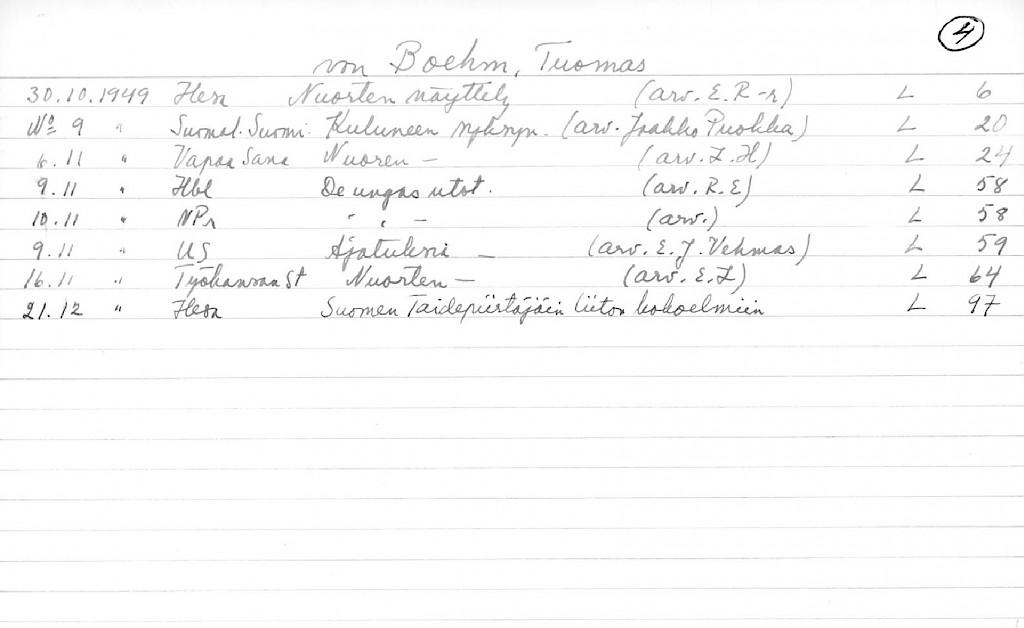 4
von Boehm, Tuomas
30.10.1949 Hesa Nuorten näyttely (arv. E. R-r) L 6
No 9 " Suomal. Suomi. Kuluneen syksyn. (arv. Jaakko Puokka) L 20
6.11 " Vapaa Sana Nuoren — (arv. L. H) L 24
9.11 " Hbl De ungas utst. (arv. R. E) L 58
10.11 " NPr " " — (arv.) L 58
9.11 " US Ajatuksia — (arv. E. J. Vehmas) L 59
16.11 " Työkansan St Nuorten — (arv. E. L) L 64
21.12 " Hesa Suomen Taidepiirtäjäin liiton kokoelmiin L 97